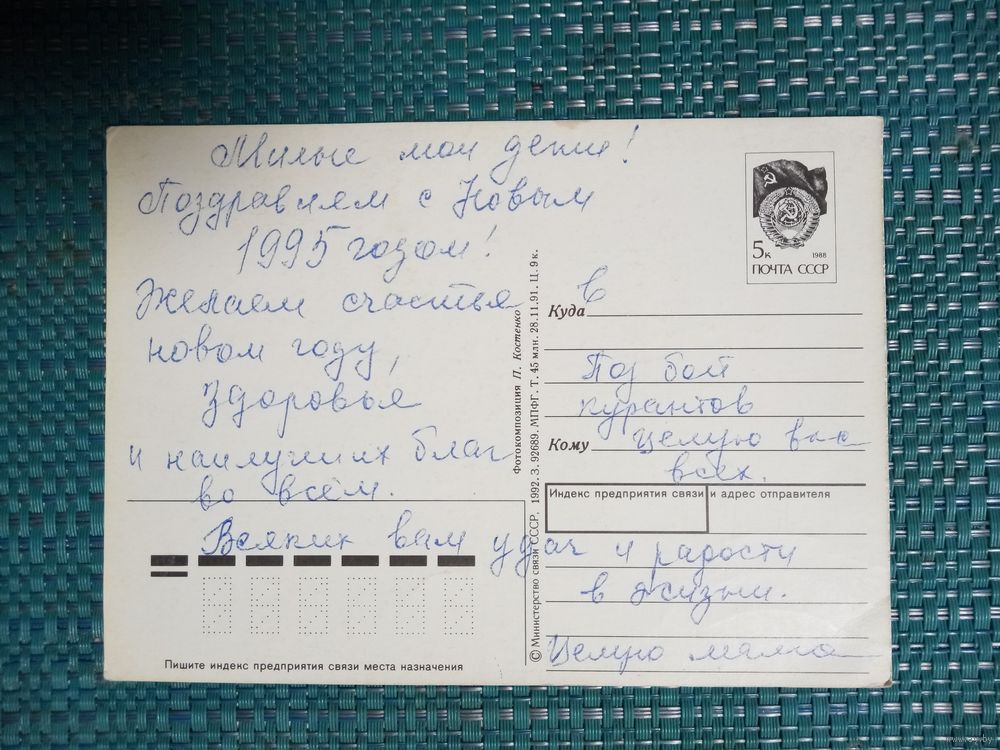 Милые мои дети!
Поздравляем с Новым
1995 годом!
Желаем счастья в
новом году,
здоровья
и наилучших благ
во всём.
Всяких вам удач и радости
в жизни.
Под бой
курантов
целую вас
всех.
Целую мама
5к 1988
ПОЧТА СССР
Куда
Кому
Индекс предприятия связи и адрес отправителя
Фотокомпозиция П. Костенко
© Министерство связи СССР. 1992. З. 92689. МПФГ. Т. 45 млн. 28.11.91. Ц. 9 к.
Пишите индекс предприятия связи места назначения